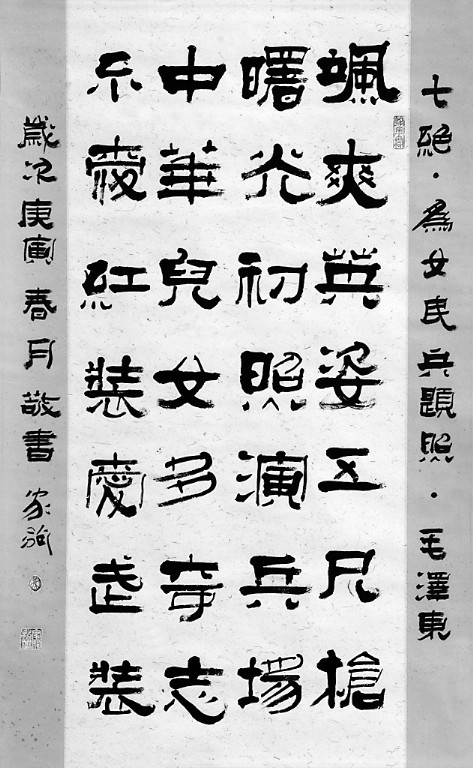 七絕·爲女民兵題照·毛澤東
颯爽英姿五尺槍
曙光初照演兵場
中華兒女多奇志
不愛紅裝愛武裝
歲次庚寅春月敬書 家